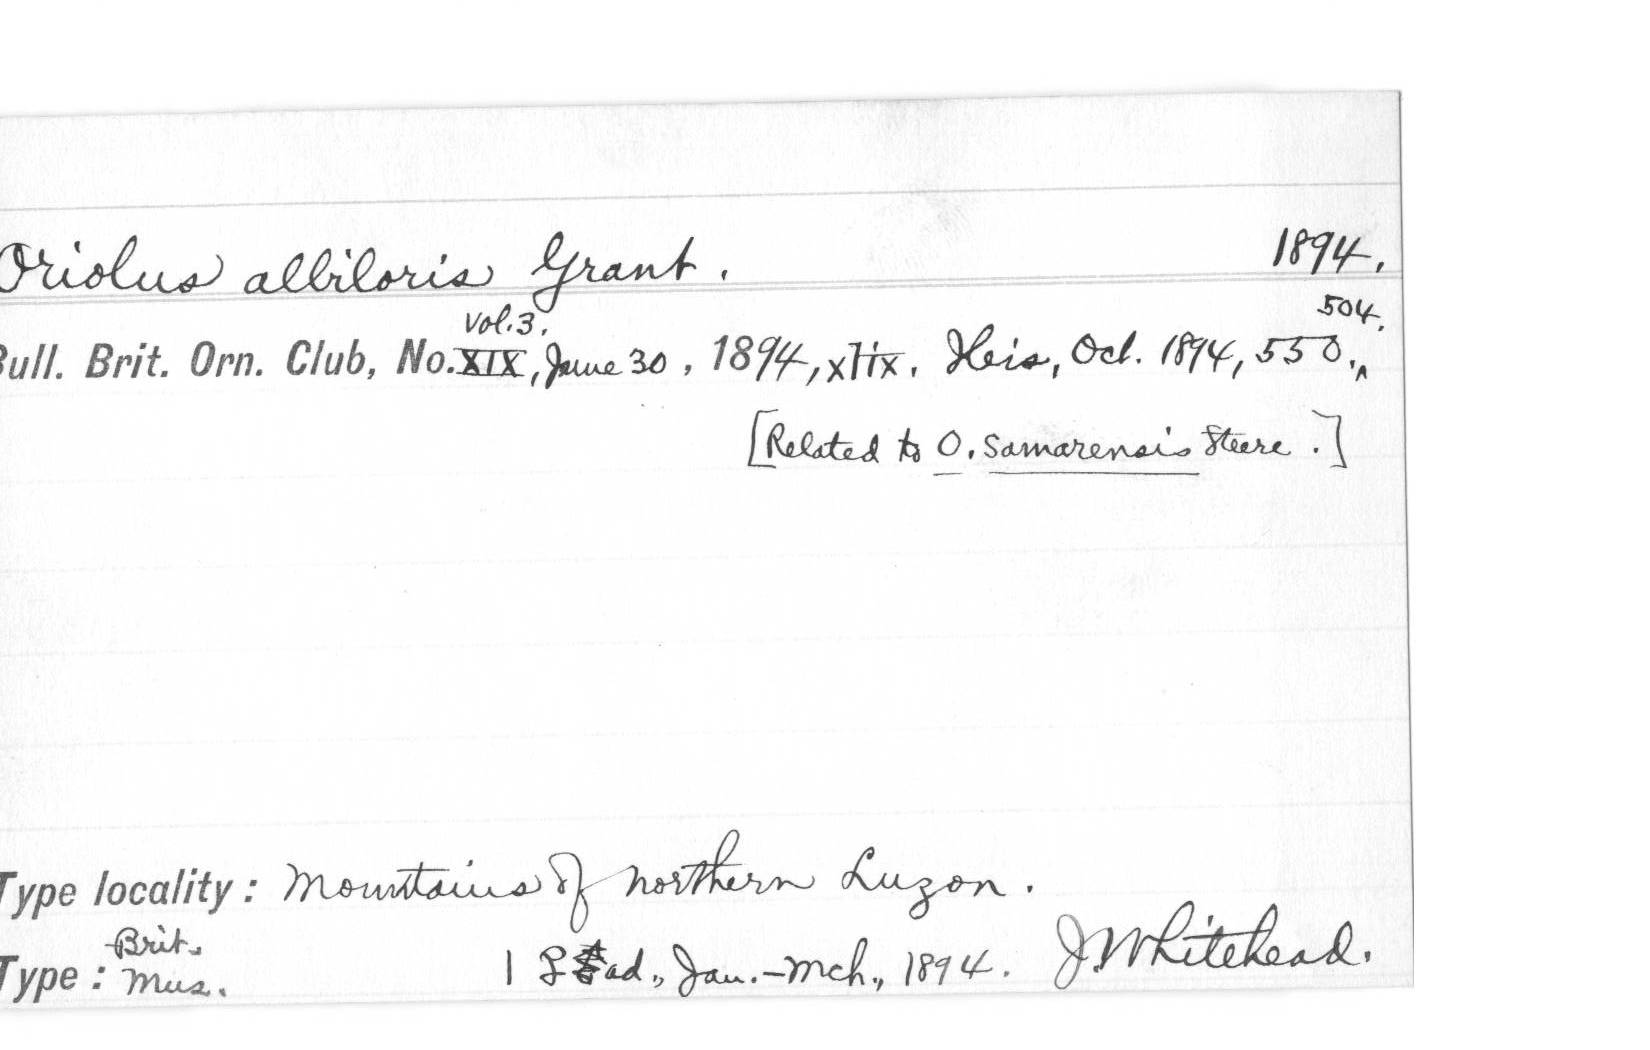 Oriolus albiloris Grant. 1894.
Vol. 3. 504.
Bull. Brit. Orn. Club, No. XIX, June 30, 1894, xlix. Ibis, Oct. 1894, 550.
[Related to O. Samarensis Steere.]
Type locality: Mountains of northern Luzon.
Brit.
Type: Mus. 1 ♀ ad., Jan.-Mch., 1894. J. Whitehead.